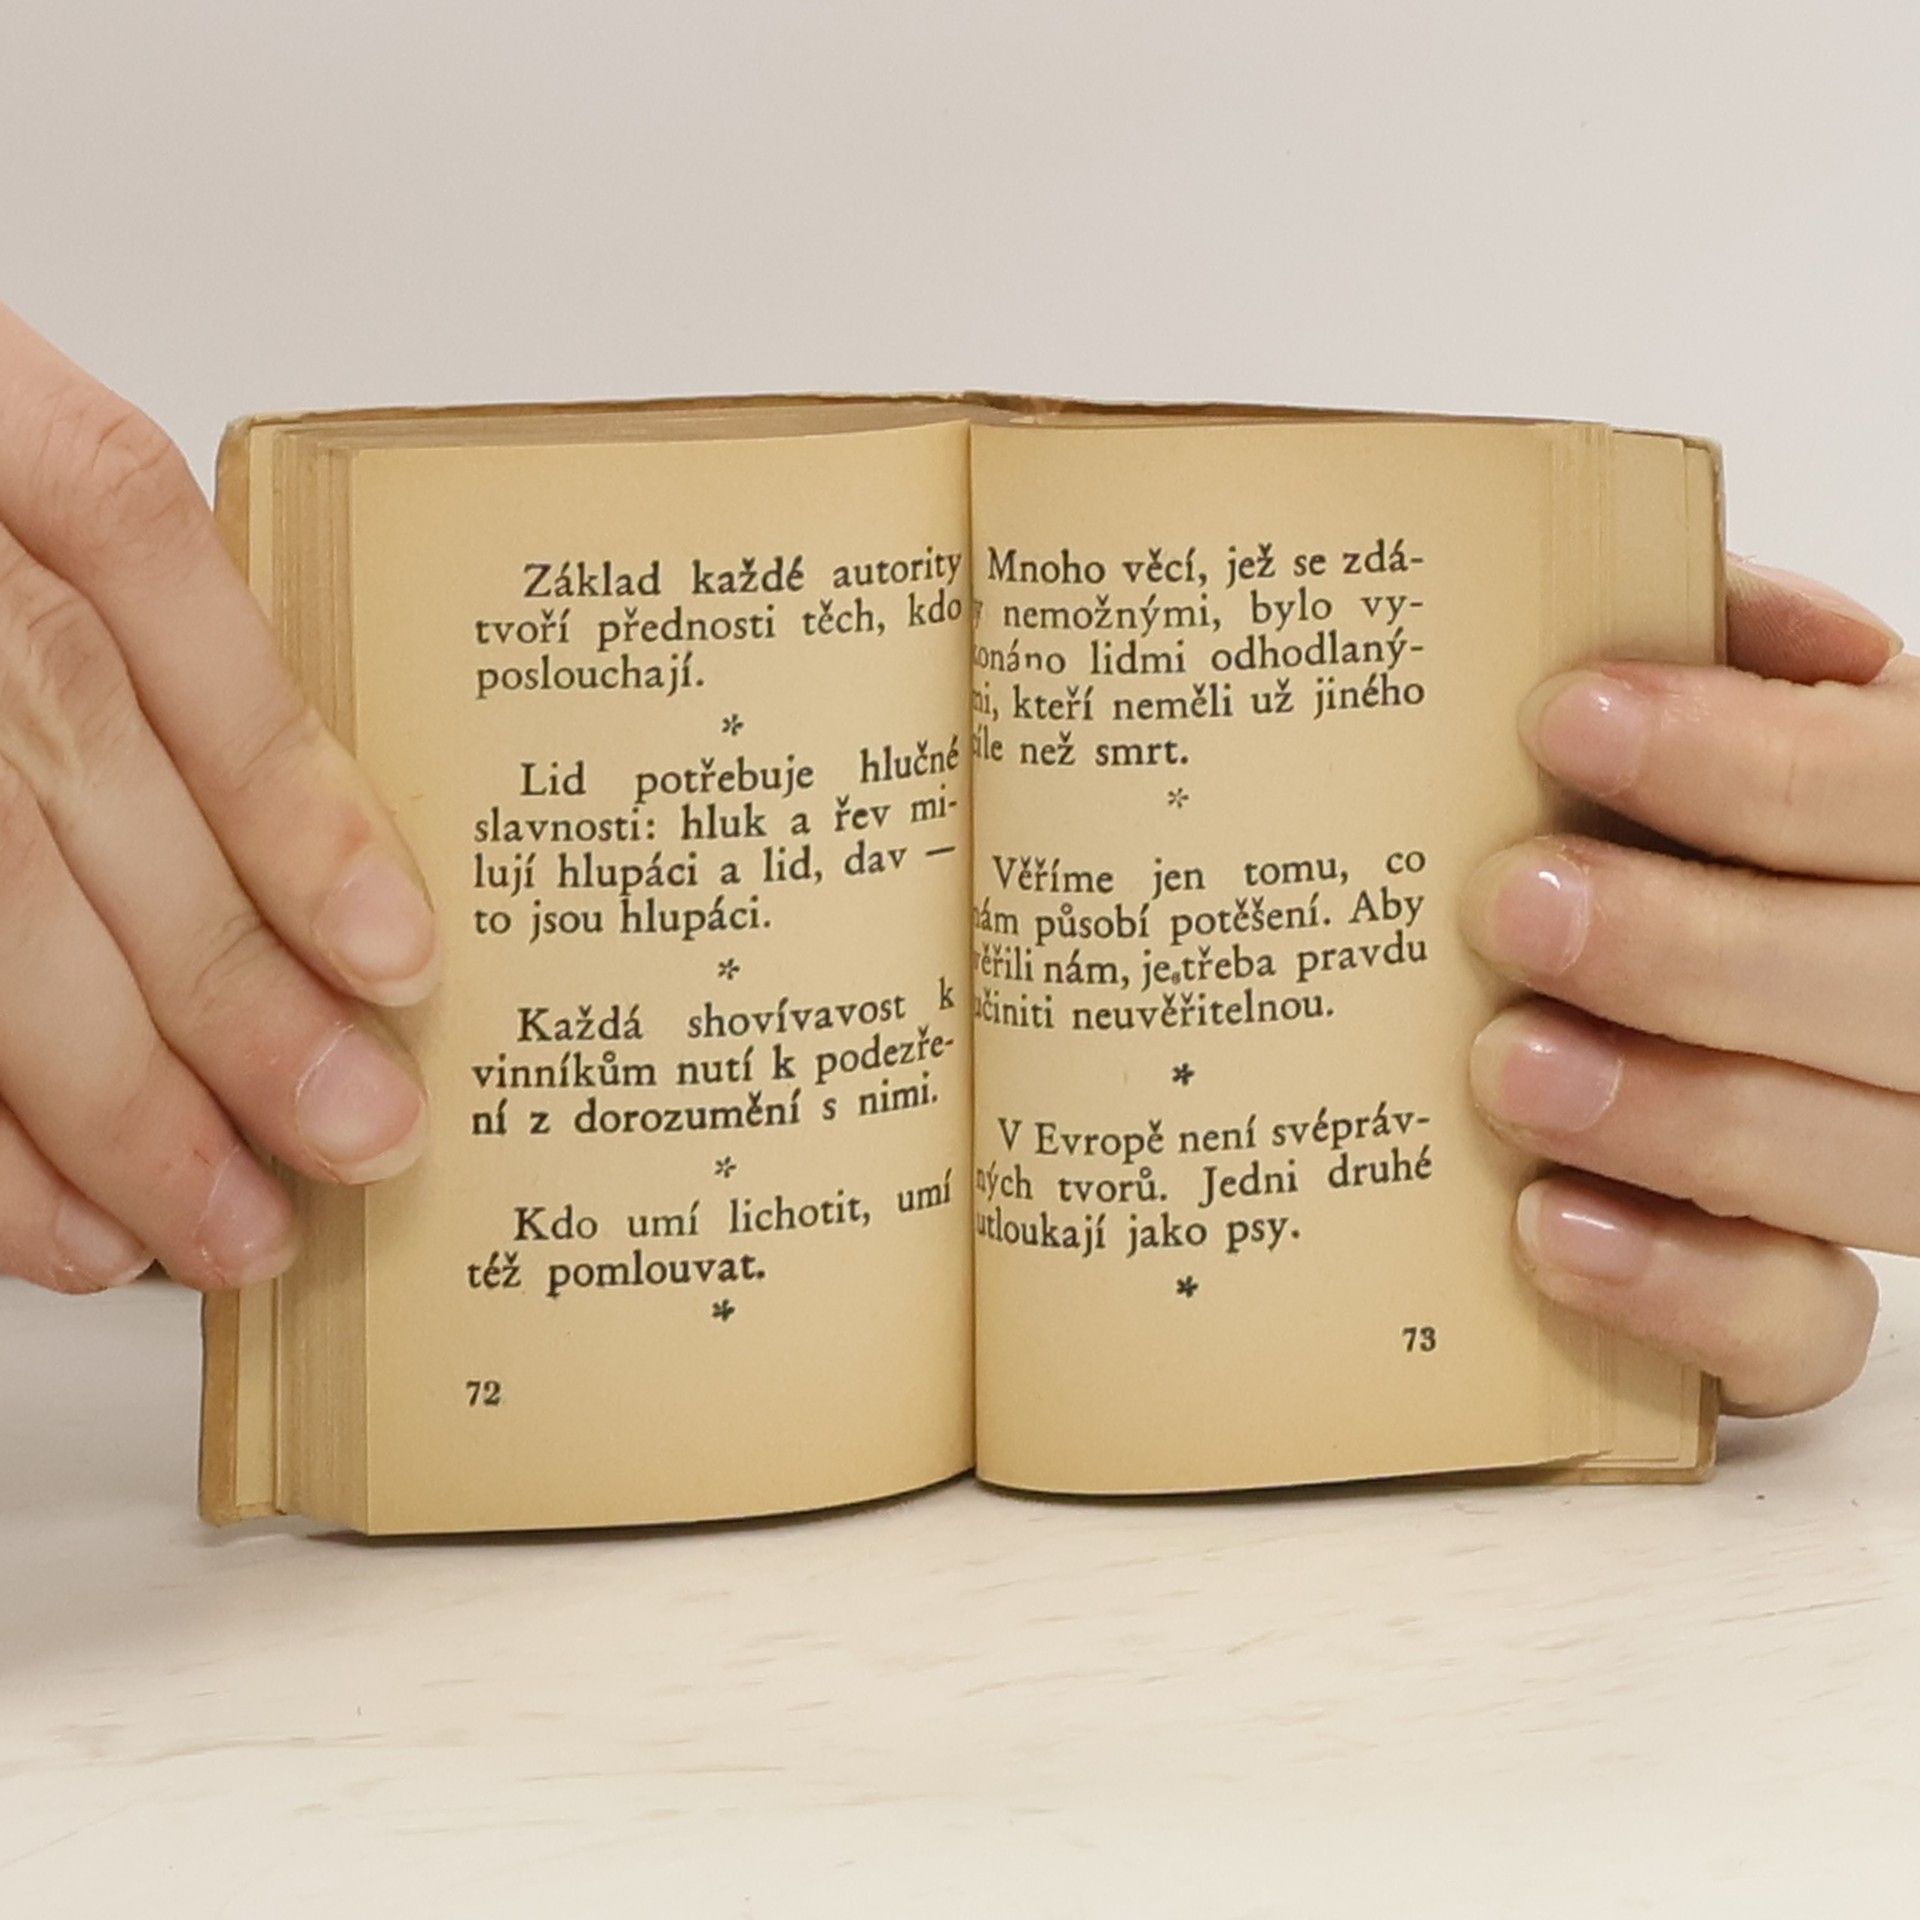 Základ každé autority
tvoří přednosti těch, kdo
poslouchají.
*
Lid potřebuje hlučné
slavnosti: hluk a řev mi-
lují hlupáci a lid, dav —
to jsou hlupáci.
*
Každá shovívavost k
vinníkům nutí k podezře-
ní z dorozumění s nimi.
*
Kdo umí lichotit, umí
též pomlouvat.
*
72
Mnoho věcí, jež se zdá-
nemožnými, bylo vy-
konáno lidmi odhodlaný-
mi, kteří neměli už jiného
cíle než smrt.
*
Věříme jen tomu, co
nám působí potěšení. Aby
věřili nám, je třeba pravdu
učiniti neuvěřitelnou.
*
V Evropě není svépráv-
ných tvorů. Jedni druhé
utloukají jako psy.
*
73